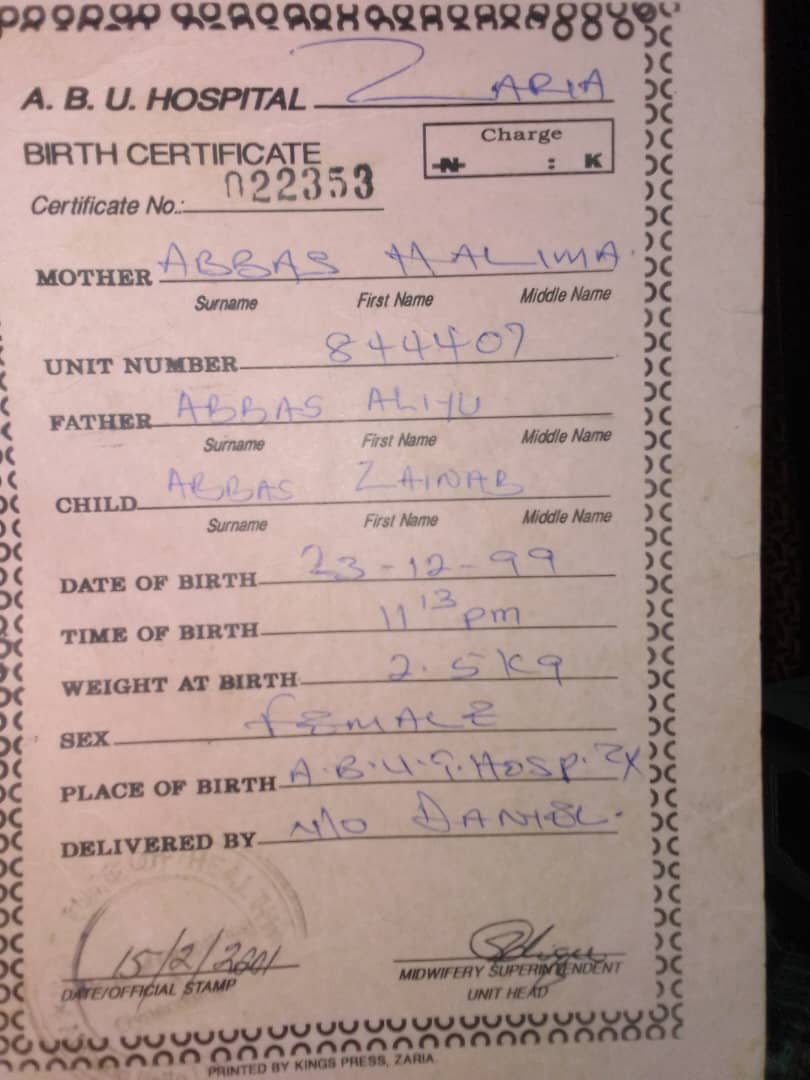 A. B. U. HOSPITAL ZARIA
BIRTH CERTIFICATE
Charge
N : K
Certificate No.: 022353
MOTHER ABBAS HALIMA.
Surname First Name Middle Name
UNIT NUMBER 844407
FATHER ABBAS ALIYU
Surname First Name Middle Name
CHILD ABBAS ZAINAB
Surname First Name Middle Name
DATE OF BIRTH 23-12-99
TIME OF BIRTH 11 13 pm
WEIGHT AT BIRTH 2.5kg
SEX FEMALE
PLACE OF BIRTH A.B.U.T.HOSP.
DELIVERED BY DANIEL.
15/2/2001
DATE/OFFICIAL STAMP
MIDWIFERY SUPERINTENDENT
UNIT HEAD
PRINTED BY KINGS PRESS, ZARIA